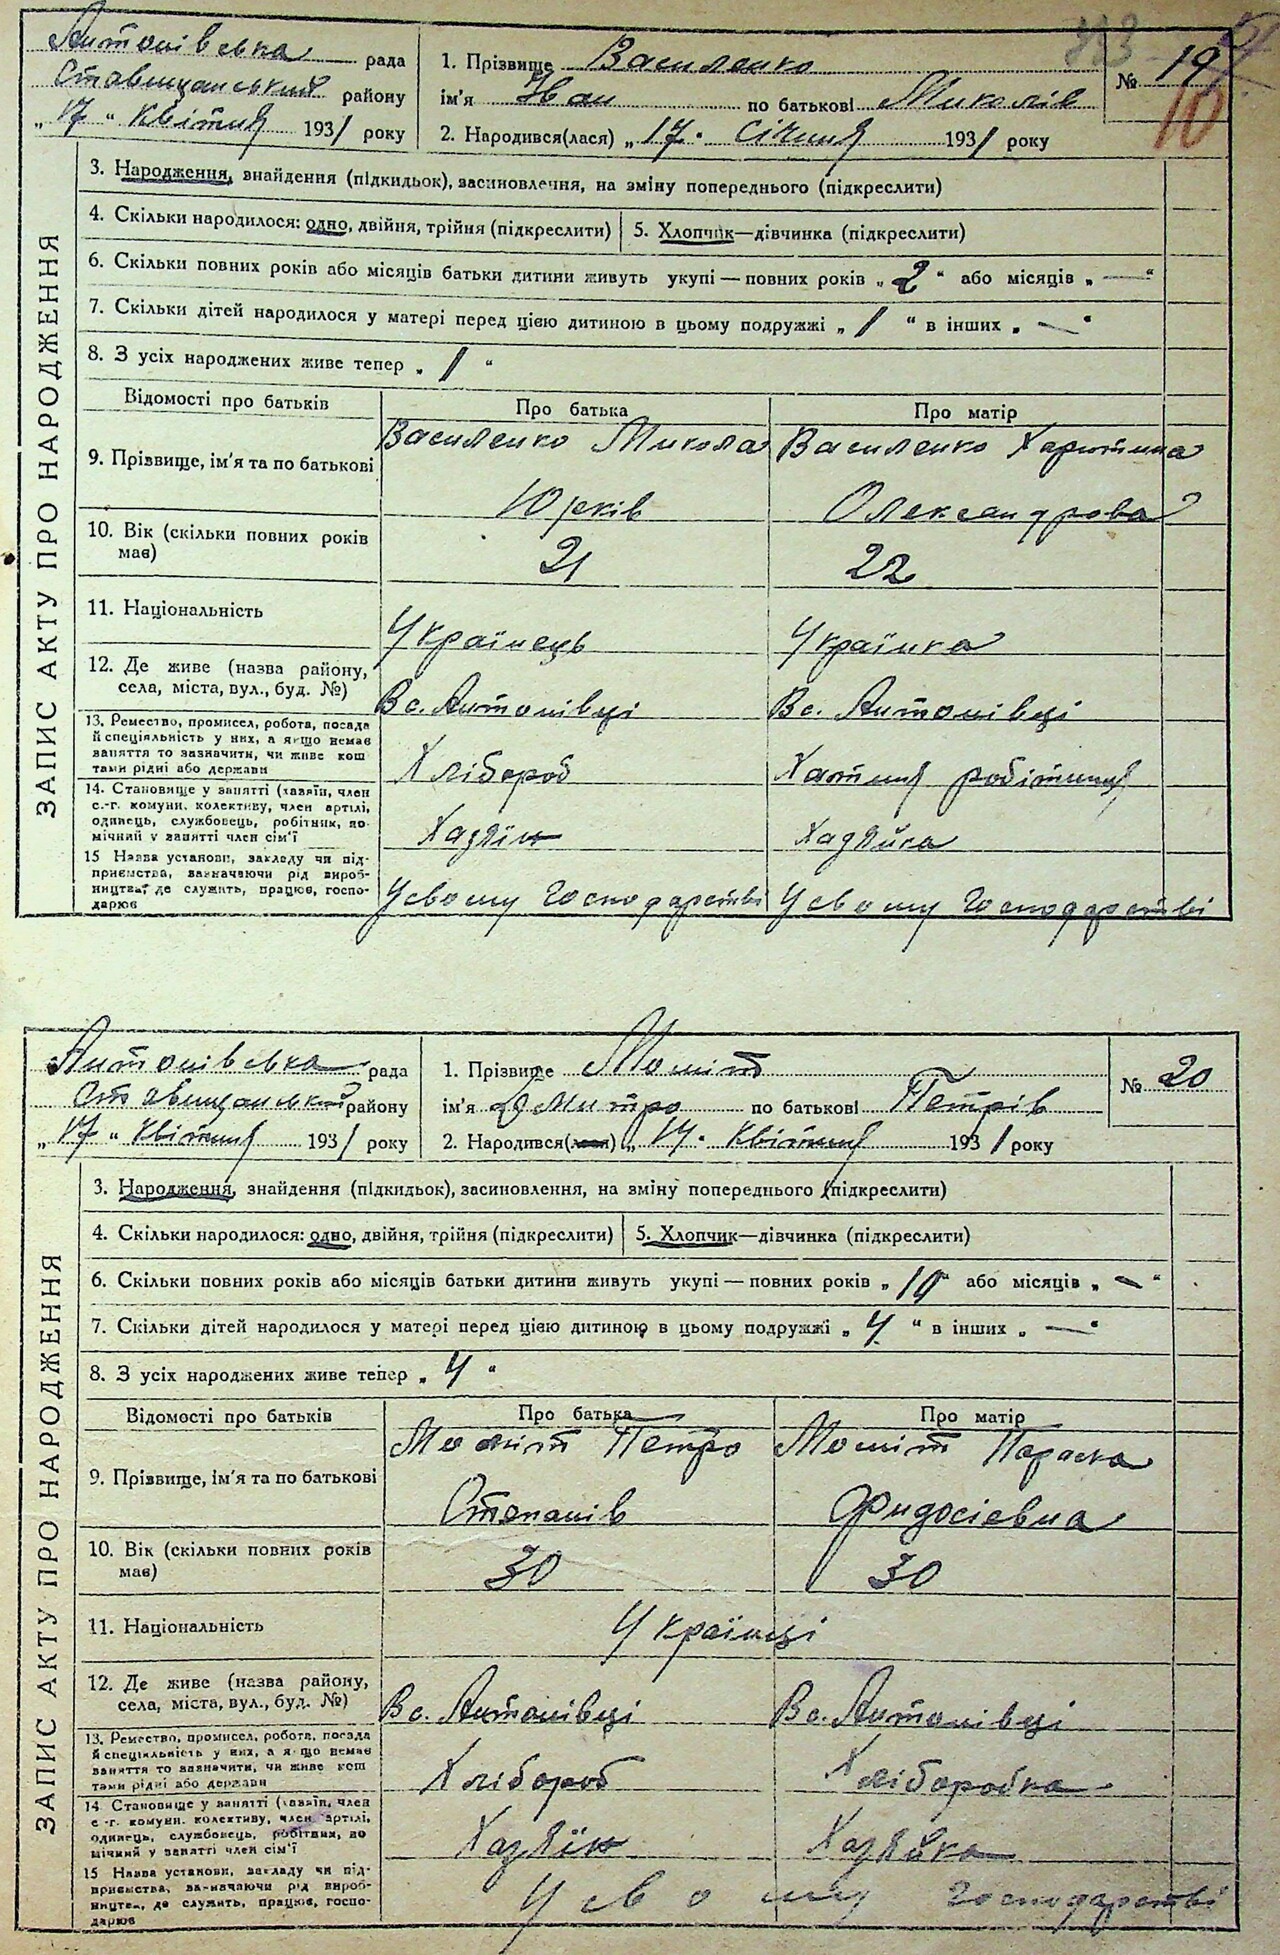 Антонівська рада
Ставищанський району
„17“ Квітня 1931 року
1. Прізвище Василенко
ім'я Іван по батькові Миколів
2. Народився(лася) „17. Січня 1931 року
№ 19
10
ЗАПИС АКТУ ПРО НАРОДЖЕННЯ
3. Народження, знайдення (підкидьок), засиновлення, на зміну попереднього (підкреслити)
4. Скільки народилося: одно, двійня, трійня (підкреслити) 5. Хлопчик—дівчинка (підкреслити)
6. Скільки повних років або місяців батьки дитини живуть укупі — повних років „2“ або місяців „—“
7. Скільки дітей народилося у матері перед цією дитиною в цьому подружжі „1“ в інших „—“
8. З усіх народжених живе тепер „1“
Відомості про батьків Про батька Про матір
9. Прізвище, ім'я та по батькові
Василенко Микола
Юрків
Василенко Харитина
Олександрова
10. Вік (скільки повних років
має)
21 22
11. Національність
Українець Українка
12. Де живе (назва району,
села, міста, вул., буд. №)
В с. Антонівці В с. Антонівці
13. Ремество, промисел, робота, посада
й спеціяльність у них, а якщо немає
заняття то зазначити, чи живе кош
тами рідні або держави
Хлібороб Хатня робітниця
14. Становище у занятті (хазяїн, член
с.-г. комуни, колективу, член артілі,
одинець, службовець, робітник, по
мічний у занятті член сім'ї
Хазяїн Хазяйка
15 Назва установи, закладу чи під-
приємства, зазначаючи рід вироб-
ництва, де служить, працює, госпо-
дарює
У своему господарстві У своему господарстві
Антонівська рада
Ставищанський району
„17“ Квітня 1931 року
1. Прізвище Мокіт
ім'я Дмитро по батькові Петрів
2. Народився(лася) „14. Квітня 1931 року
№ 20
ЗАПИС АКТУ ПРО НАРОДЖЕННЯ
3. Народження, знайдення (підкидьок), засиновлення, на зміну попереднього (підкреслити)
4. Скільки народилося: одно, двійня, трійня (підкреслити) 5. Хлопчик—дівчинка (підкреслити)
6. Скільки повних років або місяців батьки дитини живуть укупі — повних років „10“ або місяців „—“
7. Скільки дітей народилося у матері перед цією дитиною в цьому подружжі „4“ в інших „—“
8. З усіх народжених живе тепер „4“
Відомості про батьків Про батька Про матір
9. Прізвище, ім'я та по батькові
Петро
Степанів
Параска
Фидосієвна
10. Вік (скільки повних років
має)
30 30
11. Національність
Українці
12. Де живе (назва району,
села, міста, вул., буд. №)
В с. Антонівці В с. Антонівці
13. Ремество, промисел, робота, посада
й спеціяльність у них, а якщо немає
заняття то зазначити, чи живе кош
тами рідні або держави
Хлібороб Хлібаробка
14 Становище у занятті (хазяїн, член
с.-г. комуни, колективу, член артілі,
одинець, службовець, робітник, по
мічний у занятті член сім'ї
Хазяїн Хазяйка
15 Назва установи, закладу чи під-
приємства, зазначаючи рід вироб-
ництва, де служить, працює, госпо-
дарює
У своему господарстві